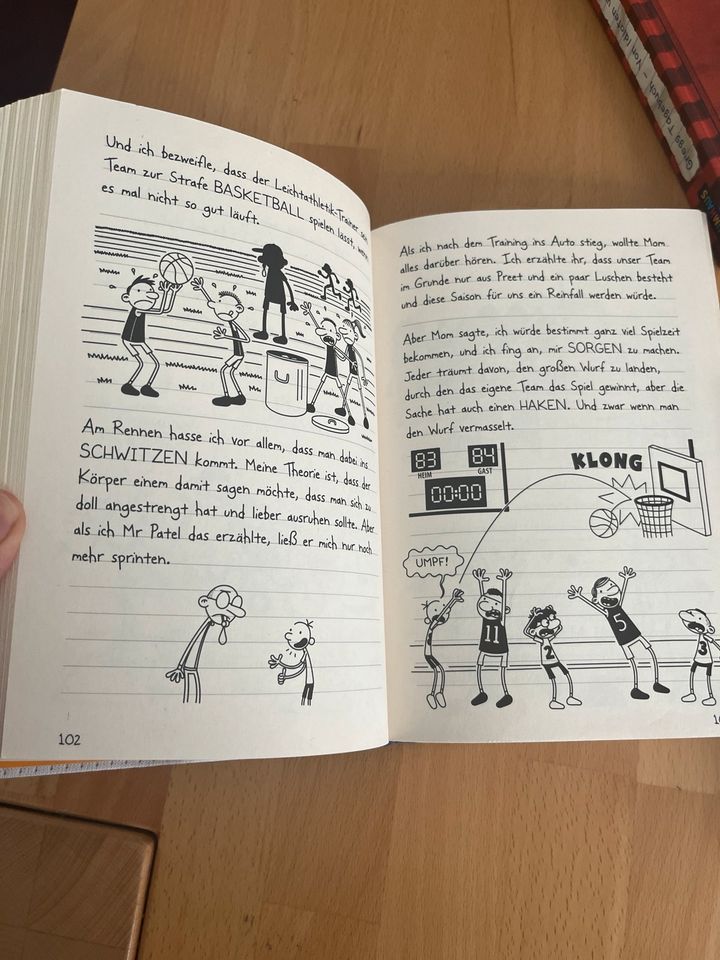 Und ich bezweifle, dass der Leichtathletik-Trainer sein
Team zur Strafe BASKETBALL spielen lässt, wenn
es mal nicht so gut läuft.
Am Rennen hasse ich vor allem, dass man dabei ins
SCHWITZEN kommt. Meine Theorie ist, dass der
Körper einem damit sagen möchte, dass man sich zu
doll angestrengt hat und lieber ausruhen sollte. Aber
als ich Mr Patel das erzählte, ließ er mich nur noch
mehr sprinten.
102
Als ich nach dem Training ins Auto stieg, wollte Mom
alles darüber hören. Ich erzählte ihr, dass unser Team
im Grunde nur aus Preet und ein paar Luschen besteht
und diese Saison für uns ein Reinfall werden würde.
Aber Mom sagte, ich würde bestimmt ganz viel Spielzeit
bekommen, und ich fing an, mir SORGEN zu machen.
Jeder träumt davon, den großen Wurf zu landen,
durch den das eigene Team das Spiel gewinnt, aber die
Sache hat auch einen HAKEN. Und zwar wenn man
den Wurf vermasselt.
83 84
HEIM GAST
00:00
KLONG
UMPF!
11
2
5
3
Gregs Tagebuch - Von Idioten